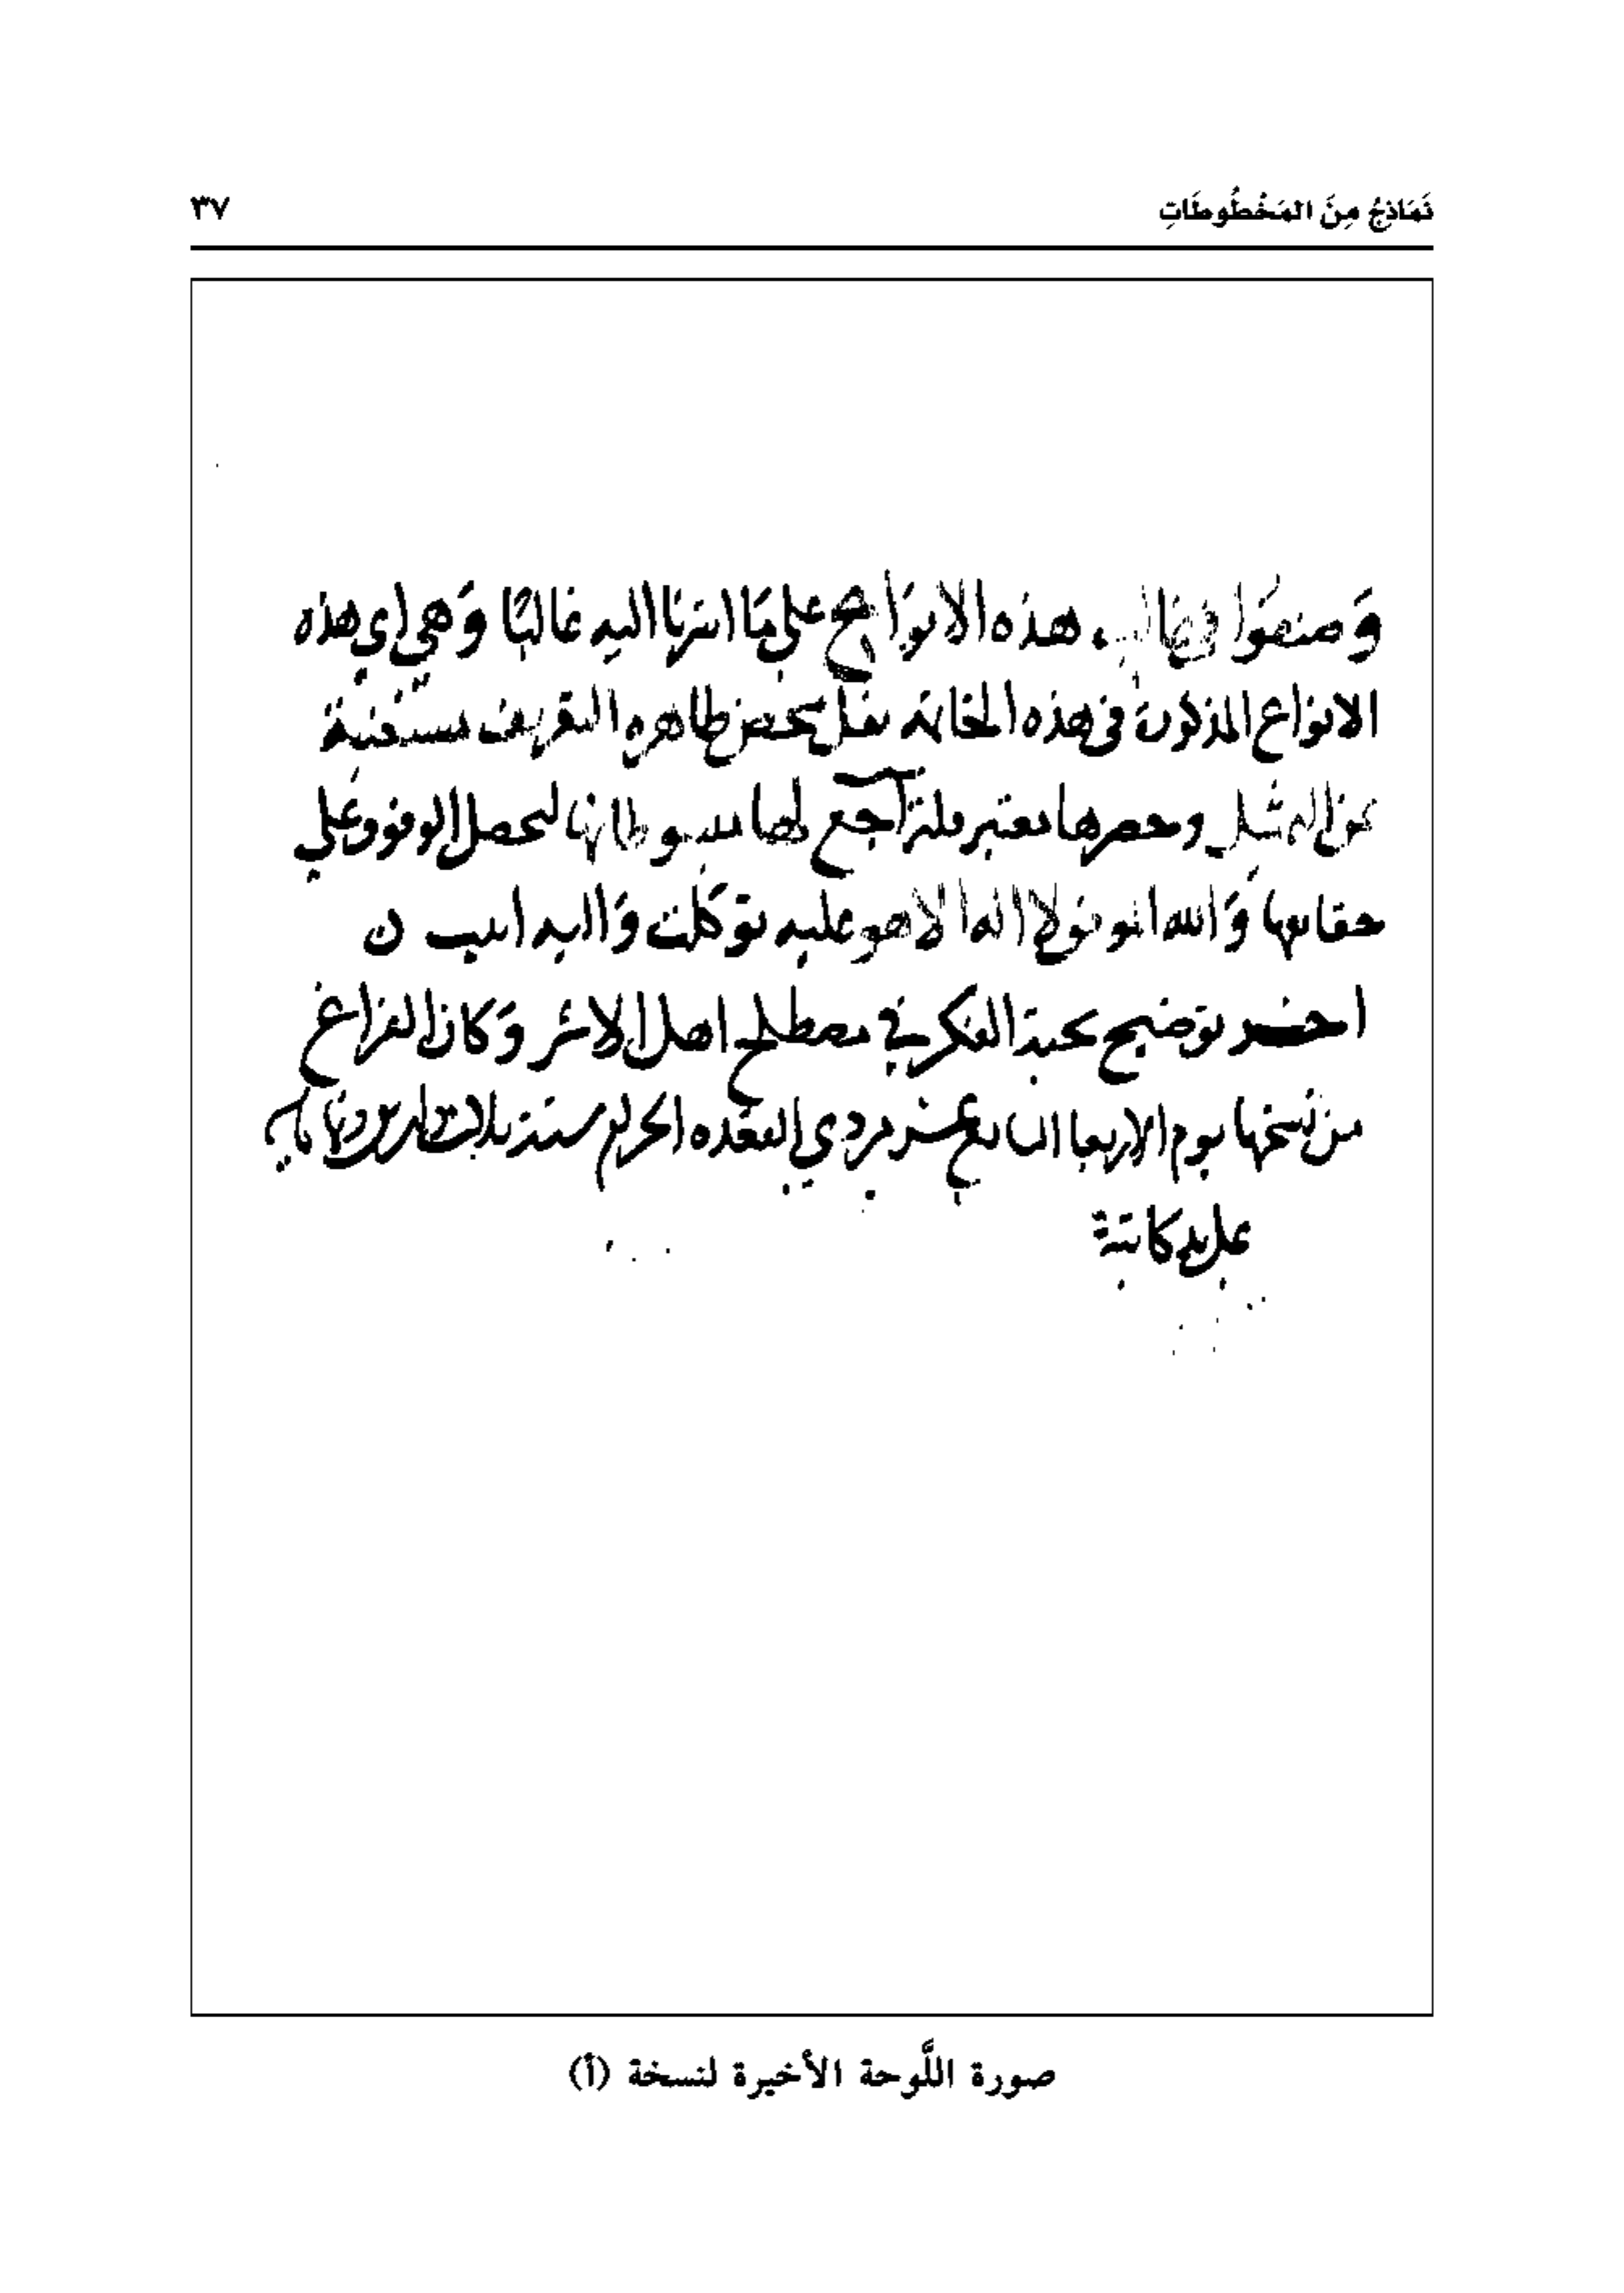 نَمَاذِجُ مِنَ المَخْطُوطَاتِ
٣٧
وَصنفوا في غالب هذه الانوَاع على مَا اشرنا اليه غالبًا وَهي اي هذه
الانواع المذكورة في هذه الخاتمة نقل محض ظاهره التعريف مستغنية
عن التمثيل وحصرها متعسر فلتراجع لها مبسوطاتها ليحصل الوقوف على
حقايقها وَالله الموفق لا اله الا هو عليه توكلت وَاليه انيب
اخر توضيح نخبة الفكر في مصطلح اهل الاثر وَكان الفراغ
من نسخها يوم الاربعا السابع عشر من ذي القعده الحرام سنة ثلاث
على يد كاتبه
صورة اللَّوحة الأخيرة لنسخة (أ)